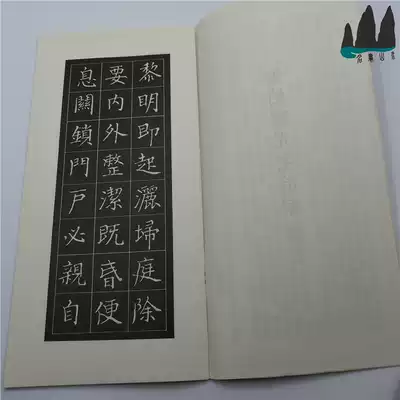 黎明即起灑埽庭除
要内外整潔既昏便
息關鎖門戶必親自